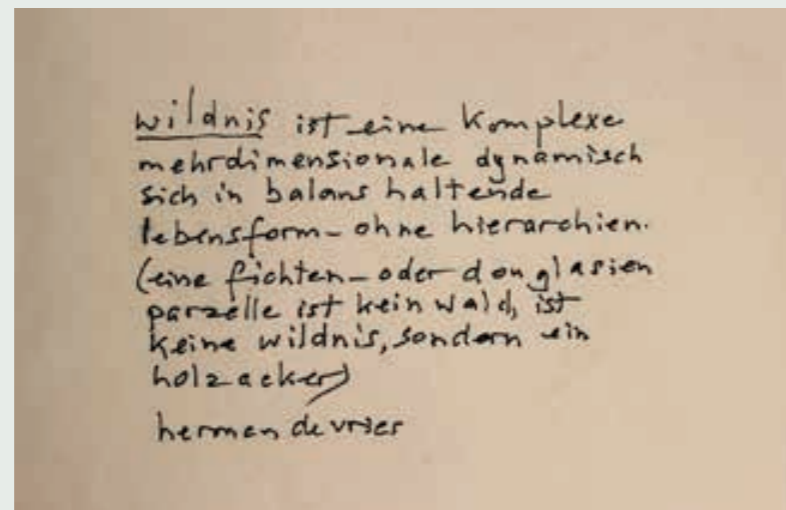 wildnis ist eine komplexe
mehrdimensionale dynamisch
sich in balans haltende
lebensform – ohne hierarchien.
(eine fichten – oder douglasien
parzelle ist kein wald, ist
keine wildnis, sondern ein
holzacker)
herman de vries